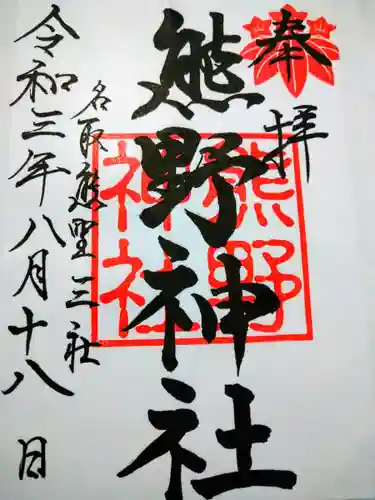 奉拝
熊野神社
熊野神社
名取熊野三社
令和三年八月十八日